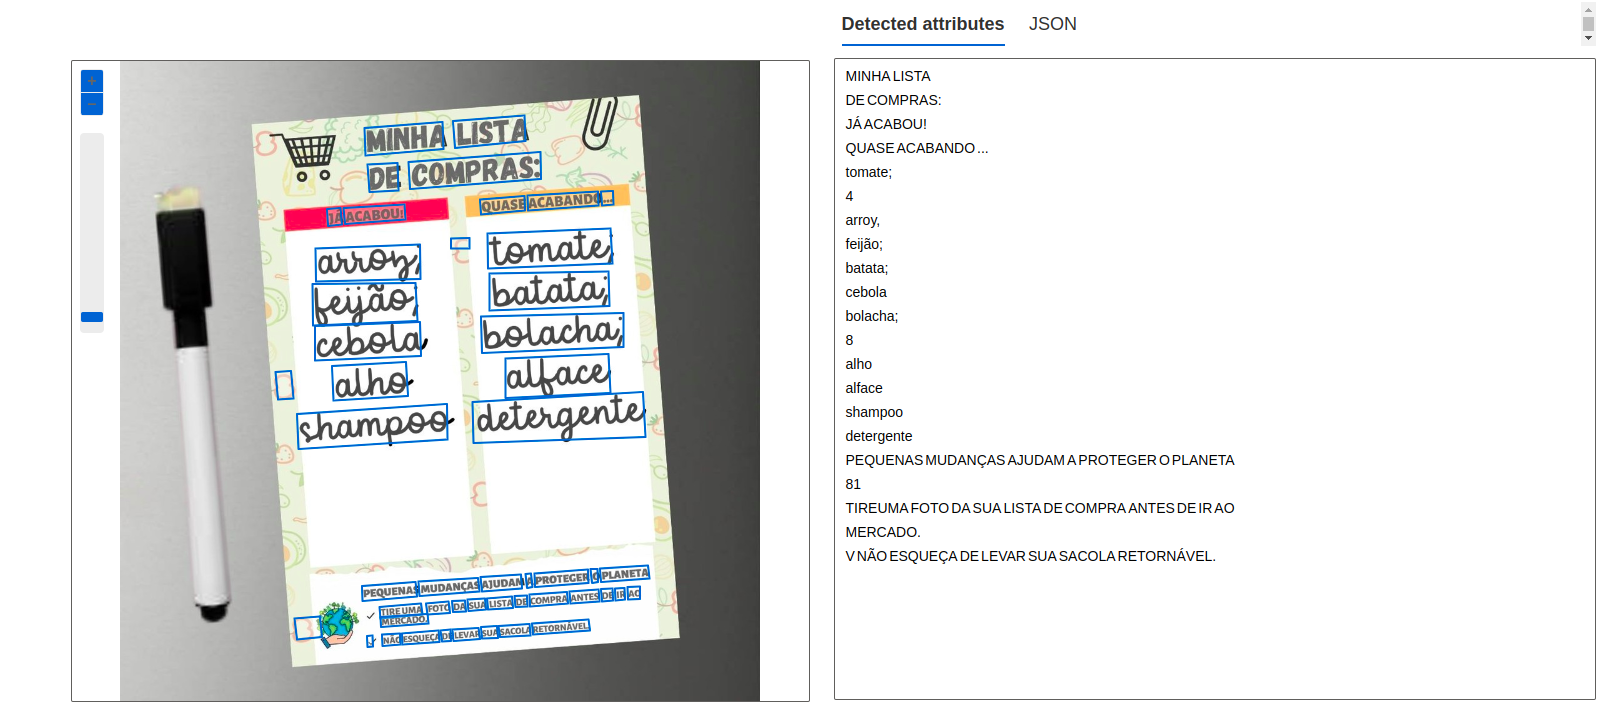 Detected attributes
JSON
+
−
MINHA LISTA
DE COMPRAS:
JÁ ACABOU!
arroy;
feijão;
cebola,
alho,
shampoo,
QUASE ACABANDO...
tomate;
batata;
bolacha;
alface
detergente,
PEQUENAS MUDANÇAS AJUDAM A PROTEGER O PLANETA
TIRE UMA FOTO DA SUA LISTA DE COMPRA ANTES DE IR AO
MERCADO.
NÃO ESQUEÇA DE LEVAR SUA SACOLA RETORNÁVEL.
MINHA LISTA
DE COMPRAS:
JÁ ACABOU!
QUASE ACABANDO ...
tomate;
4
arroy,
feijão;
batata;
cebola
bolacha;
8
alho
alface
shampoo
detergente
PEQUENAS MUDANÇAS AJUDAM A PROTEGER O PLANETA
81
TIREUMA FOTO DA SUA LISTA DE COMPRA ANTES DE IR AO
MERCADO.
V NÃO ESQUEÇA DE LEVAR SUA SACOLA RETORNÁVEL.